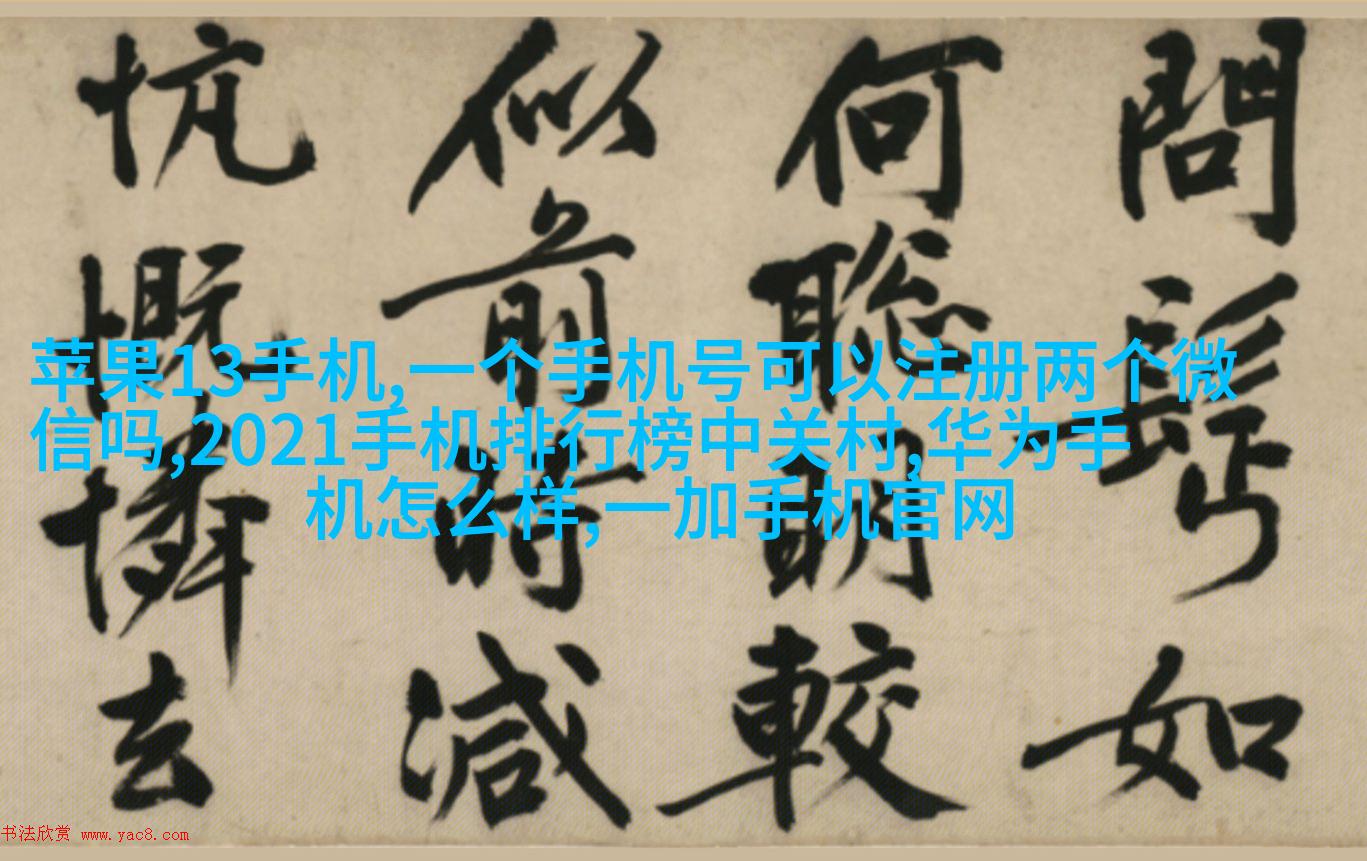 問如
何聰明較
似前時減
忼慨憐去
苹果13手机,一个手机号可以注册两个微
信吗,2021手机排行榜中关村,华为手
机怎么样,一加手机官网
书法欣赏 www.yac8.com